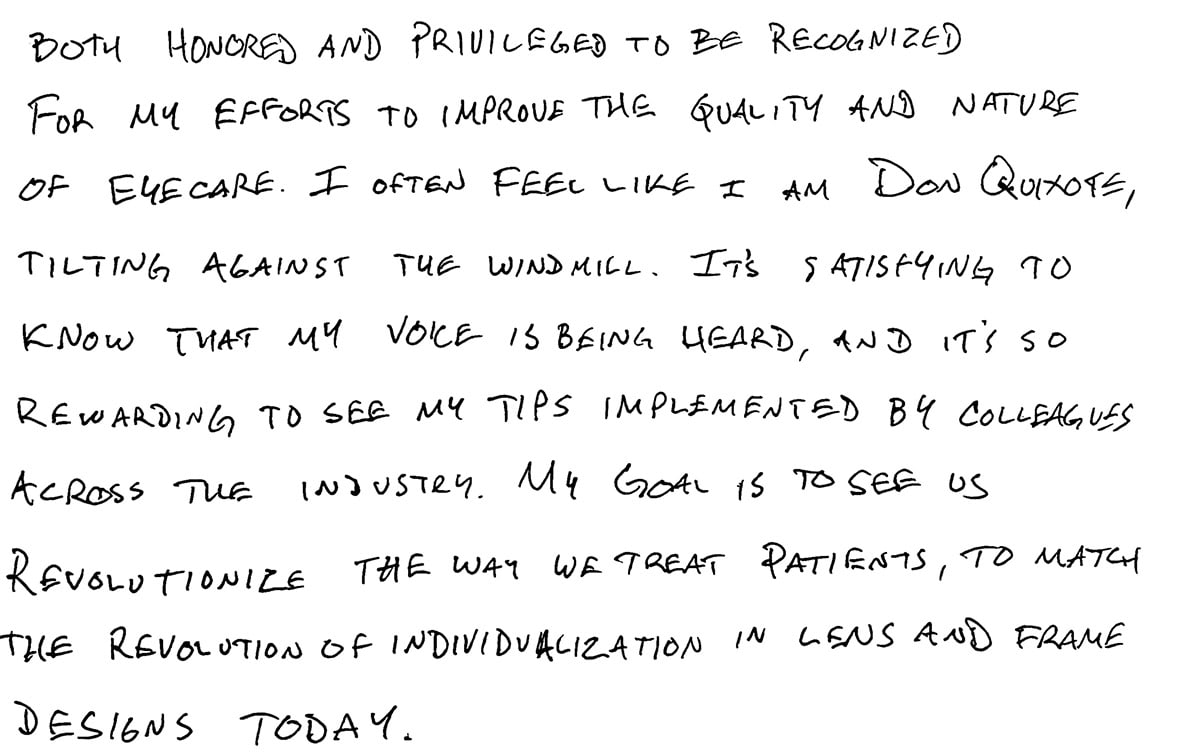 BOTH HONORED AND PRIVILEGED TO BE RECOGNIZED
FOR MY EFFORTS TO IMPROVE THE QUALITY AND NATURE
OF EYECARE. I OFTEN FEEL LIKE I AM DON QUIXOTE,
TILTING AGAINST THE WINDMILL. IT'S SATISFYING TO
KNOW THAT MY VOICE IS BEING HEARD, AND IT'S SO
REWARDING TO SEE MY TIPS IMPLEMENTED BY COLLEAGUES
ACROSS THE INDUSTRY. MY GOAL IS TO SEE US
REVOLUTIONIZE THE WAY WE TREAT PATIENTS, TO MATCH
THE REVOLUTION OF INDIVIDUALIZATION IN LENS AND FRAME
DESIGNS TODAY.